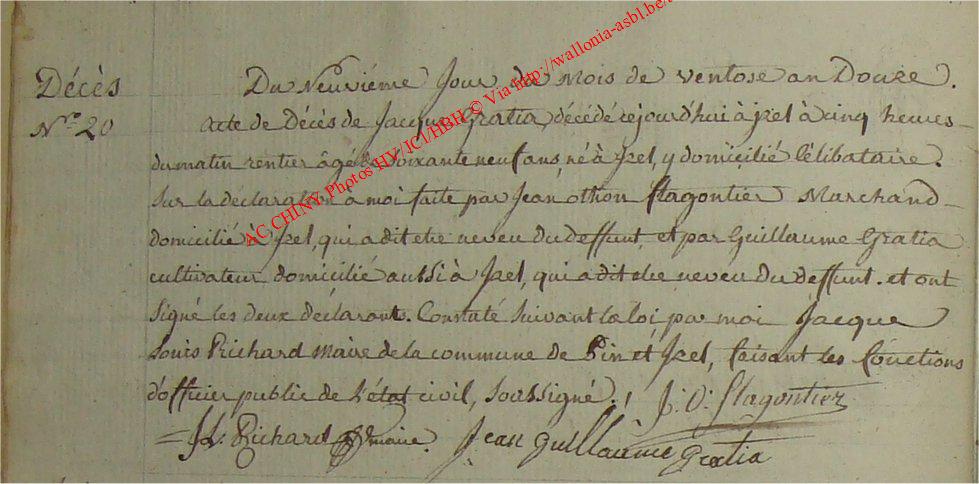 Décès
N.° 20
Du Neuviéme Jour du Mois de Ventose an Douze.
Acte de Décès de Jacque Gratia, décédé cejourd'hui à Jzel à Cinq heures
du matin rentier âgé de Soixante neuf ans, né à Jzel, y domicilié Célibataire.
Sur la déclaration à moi faite par Jean Othon Flagontier Marchand
domicilié à Jzel, qui a dit etre neveu du deffunt, et par Guillaume Gratia
cultivateur domicilié aussi à Jzel, qui a dit etre neveu du deffunt. et ont
Signé les deux déclarant. Constaté Suivant la loi par moi Jacque
Louis Richard Maire de la commune de Pin et Jzel, faisant les fonctions
d'officier public de l'état civil, Soussigné.
J: O: flagontier
JL: Richard maire.
Jean Guillaûme Gratia
AC CHINY. Photos HV/JCI/HBH © Via http://wallonia-asbl.be/